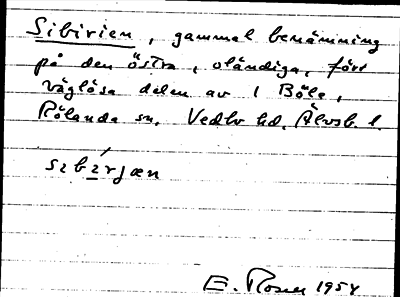 Sibirien, gammal benämning
på den östra, oländiga, förr
väglösa delen av 1 Böle,
Rölanda sn. Vedbo hd. Älvsb. l.
sɪbɪ́rjæn
E. Rosén 1954